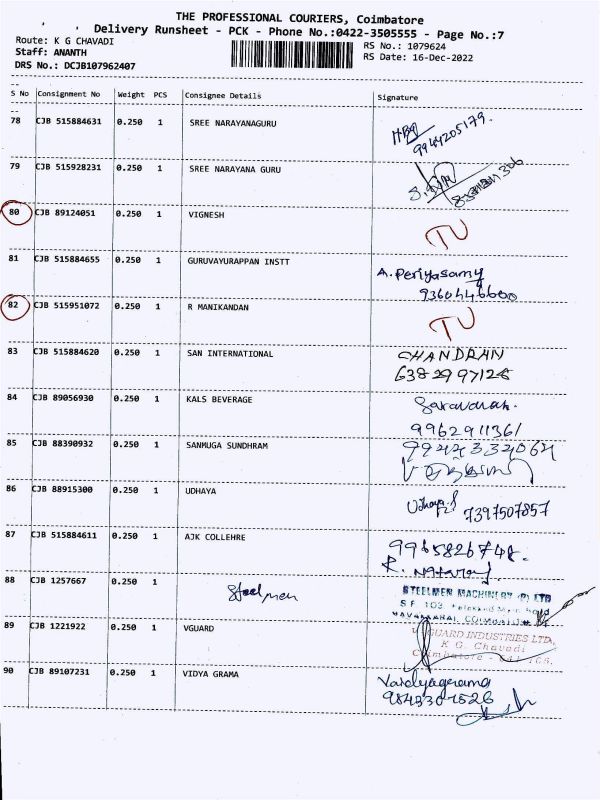 THE PROFESSIONAL COURIERS, Coimbatore
Delivery Runsheet - PCK - Phone No.:0422-3505555 - Page No.:7
Route: K G CHAVADI
RS No.: 1079624
Staff: ANANTH
RS Date: 16-Dec-2022
DRS No.: DCJB107962407
S No Consignment No Weight PCS Consignee Details Signature
78 CJB 515884631 0.250 1 SREE NARAYANAGURU
9944205179.
79 CJB 515928231 0.250 1 SREE NARAYANA GURU
80 CJB 89124051 0.250 1 VIGNESH TU
81 CJB 515884655 0.250 1 GURUVAYURAPPAN INSTT A. Periyasamy
82 CJB 515951072 0.250 1 R MANIKANDAN TU
83 CJB 515884620 0.250 1 SAN INTERNATIONAL CHANDRAN
6382997128
84 CJB 89056930 0.250 1 KALS BEVERAGE
9962911361
85 CJB 88390932 0.250 1 SANMUGA SUNDHRAM
86 CJB 88915300 0.250 1 UDHAYA Udhaya.S 7397507857
87 CJB 515884611 0.250 1 AJK COLLEHRE 9965826748.
88 CJB 1257667 0.250 1 Steelmen STEELMEN MACHINERY (P) LTD
S.F. 103
COIMBATORE
89 CJB 1221922 0.250 1 VGUARD V GUARD INDUSTRIES LTD.,
K G. Chavadi
Coimbatore - 641 105.
90 CJB 89107231 0.250 1 VIDYA GRAMA Vaidyagrama